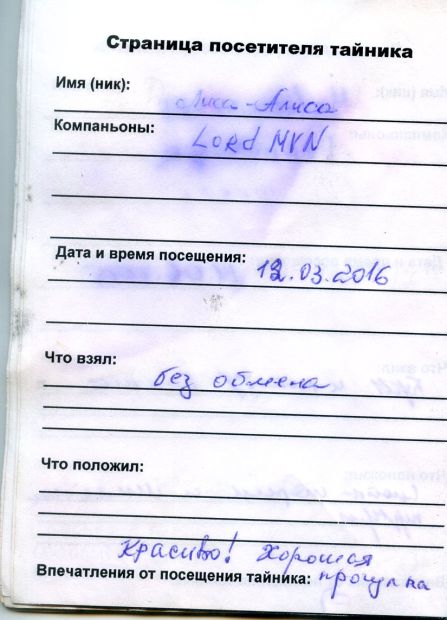 Страница посетителя тайника
Имя (ник):
Лиса-Алиса
Компаньоны:
Lord MVN
Дата и время посещения: 12.03.2016
Что взял:
без обмена
Что положил:
Красиво! Хорошая
Впечатления от посещения тайника: прогулка